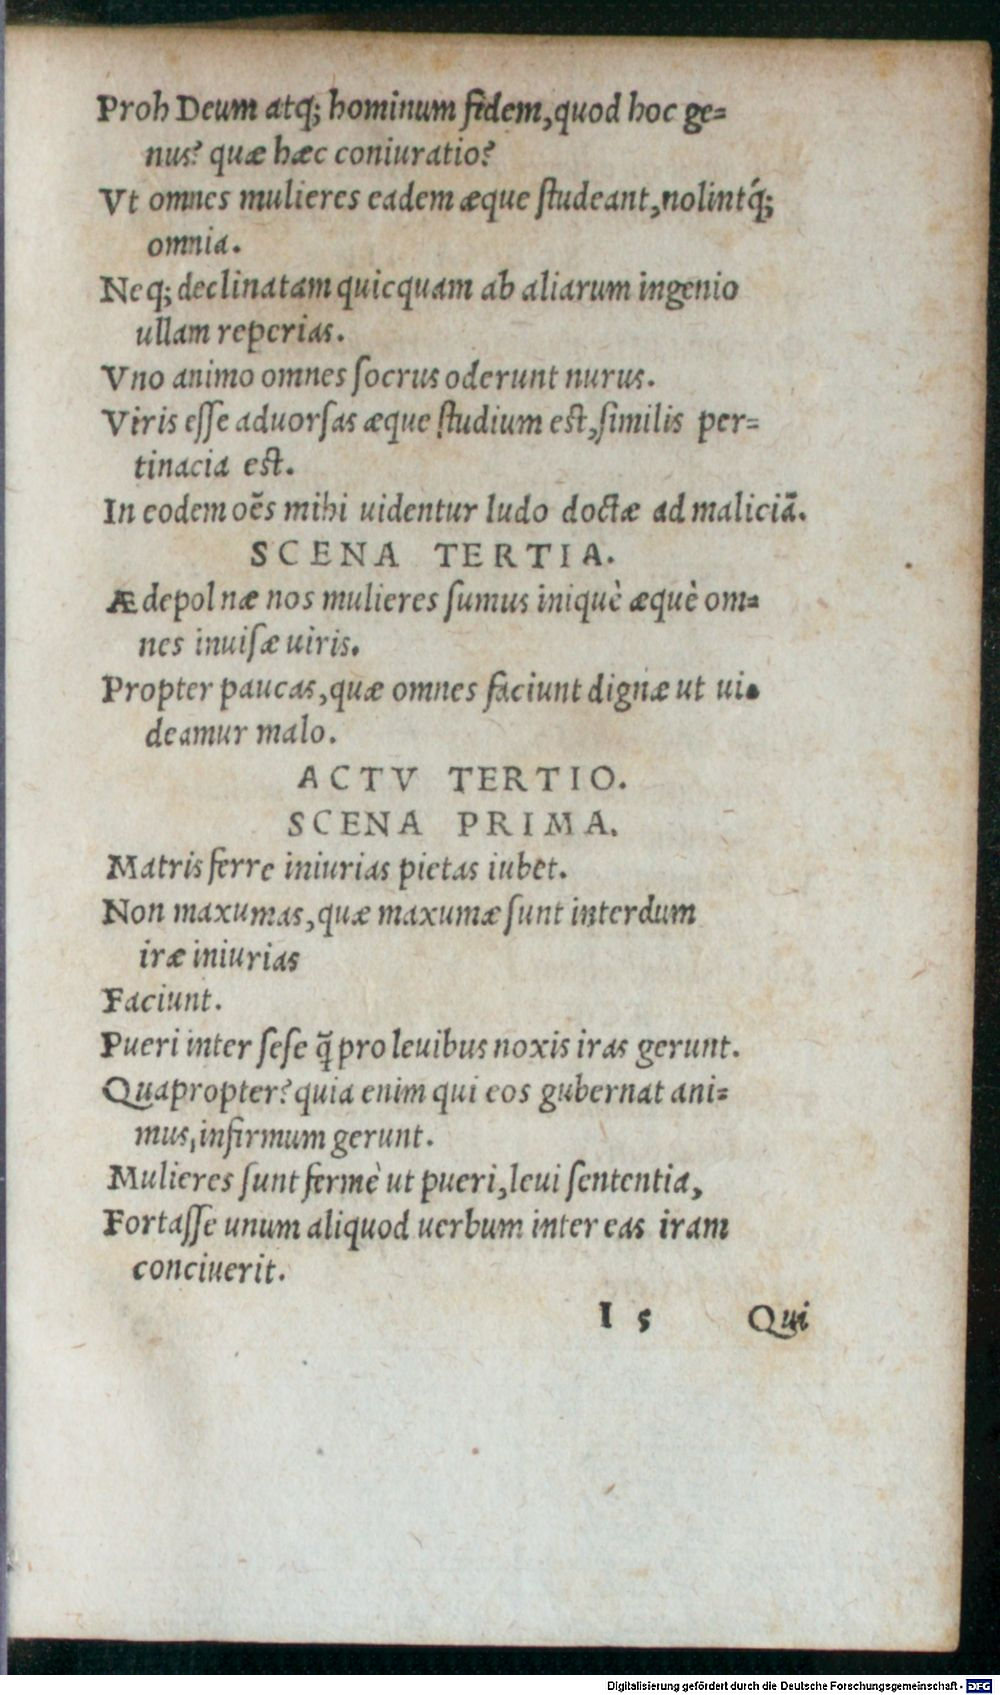 Proh Deum atq; hominum fidem, quod hoc ge=
nus? quæ hæc coniuratio?
Vt omnes mulieres eadem æque ſtudeant, nolintq́;
omnia.
Neq; declinatam quicquam ab aliarum ingenio
ullam reperias.
Vno animo omnes ſocrus oderunt nurus.
Viris eſſe aduorſas æque ſtudium eſt, ſimilis per=
tinacia eſt.
In eodem oẽs mihi uidentur ludo doctæ ad maliciã.
SCENA TERTIA.
Ædepol næ nos mulieres ſumus iniquè æquè om=
nes inuiſæ uiris.
Propter paucas, quæ omnes faciunt dignæ ut ui=
deamur malo.
ACTV TERTIO.
SCENA PRIMA.
Matris ferre iniurias pietas iubet.
Non maxumas, quæ maxumæ ſunt interdum
iræ iniurias
Faciunt.
Pueri inter ſeſe q̃ pro leuibus noxis iras gerunt.
Quapropter? quia enim qui eos gubernat ani=
mus, infirmum gerunt.
Mulieres ſunt fermè ut pueri, leui ſententia,
Fortaſſe unum aliquod uerbum inter eas iram
conciuerit.
I 5 Qui
Digitalisierung gefördert durch die Deutsche Forschungsgemeinschaft - DFG